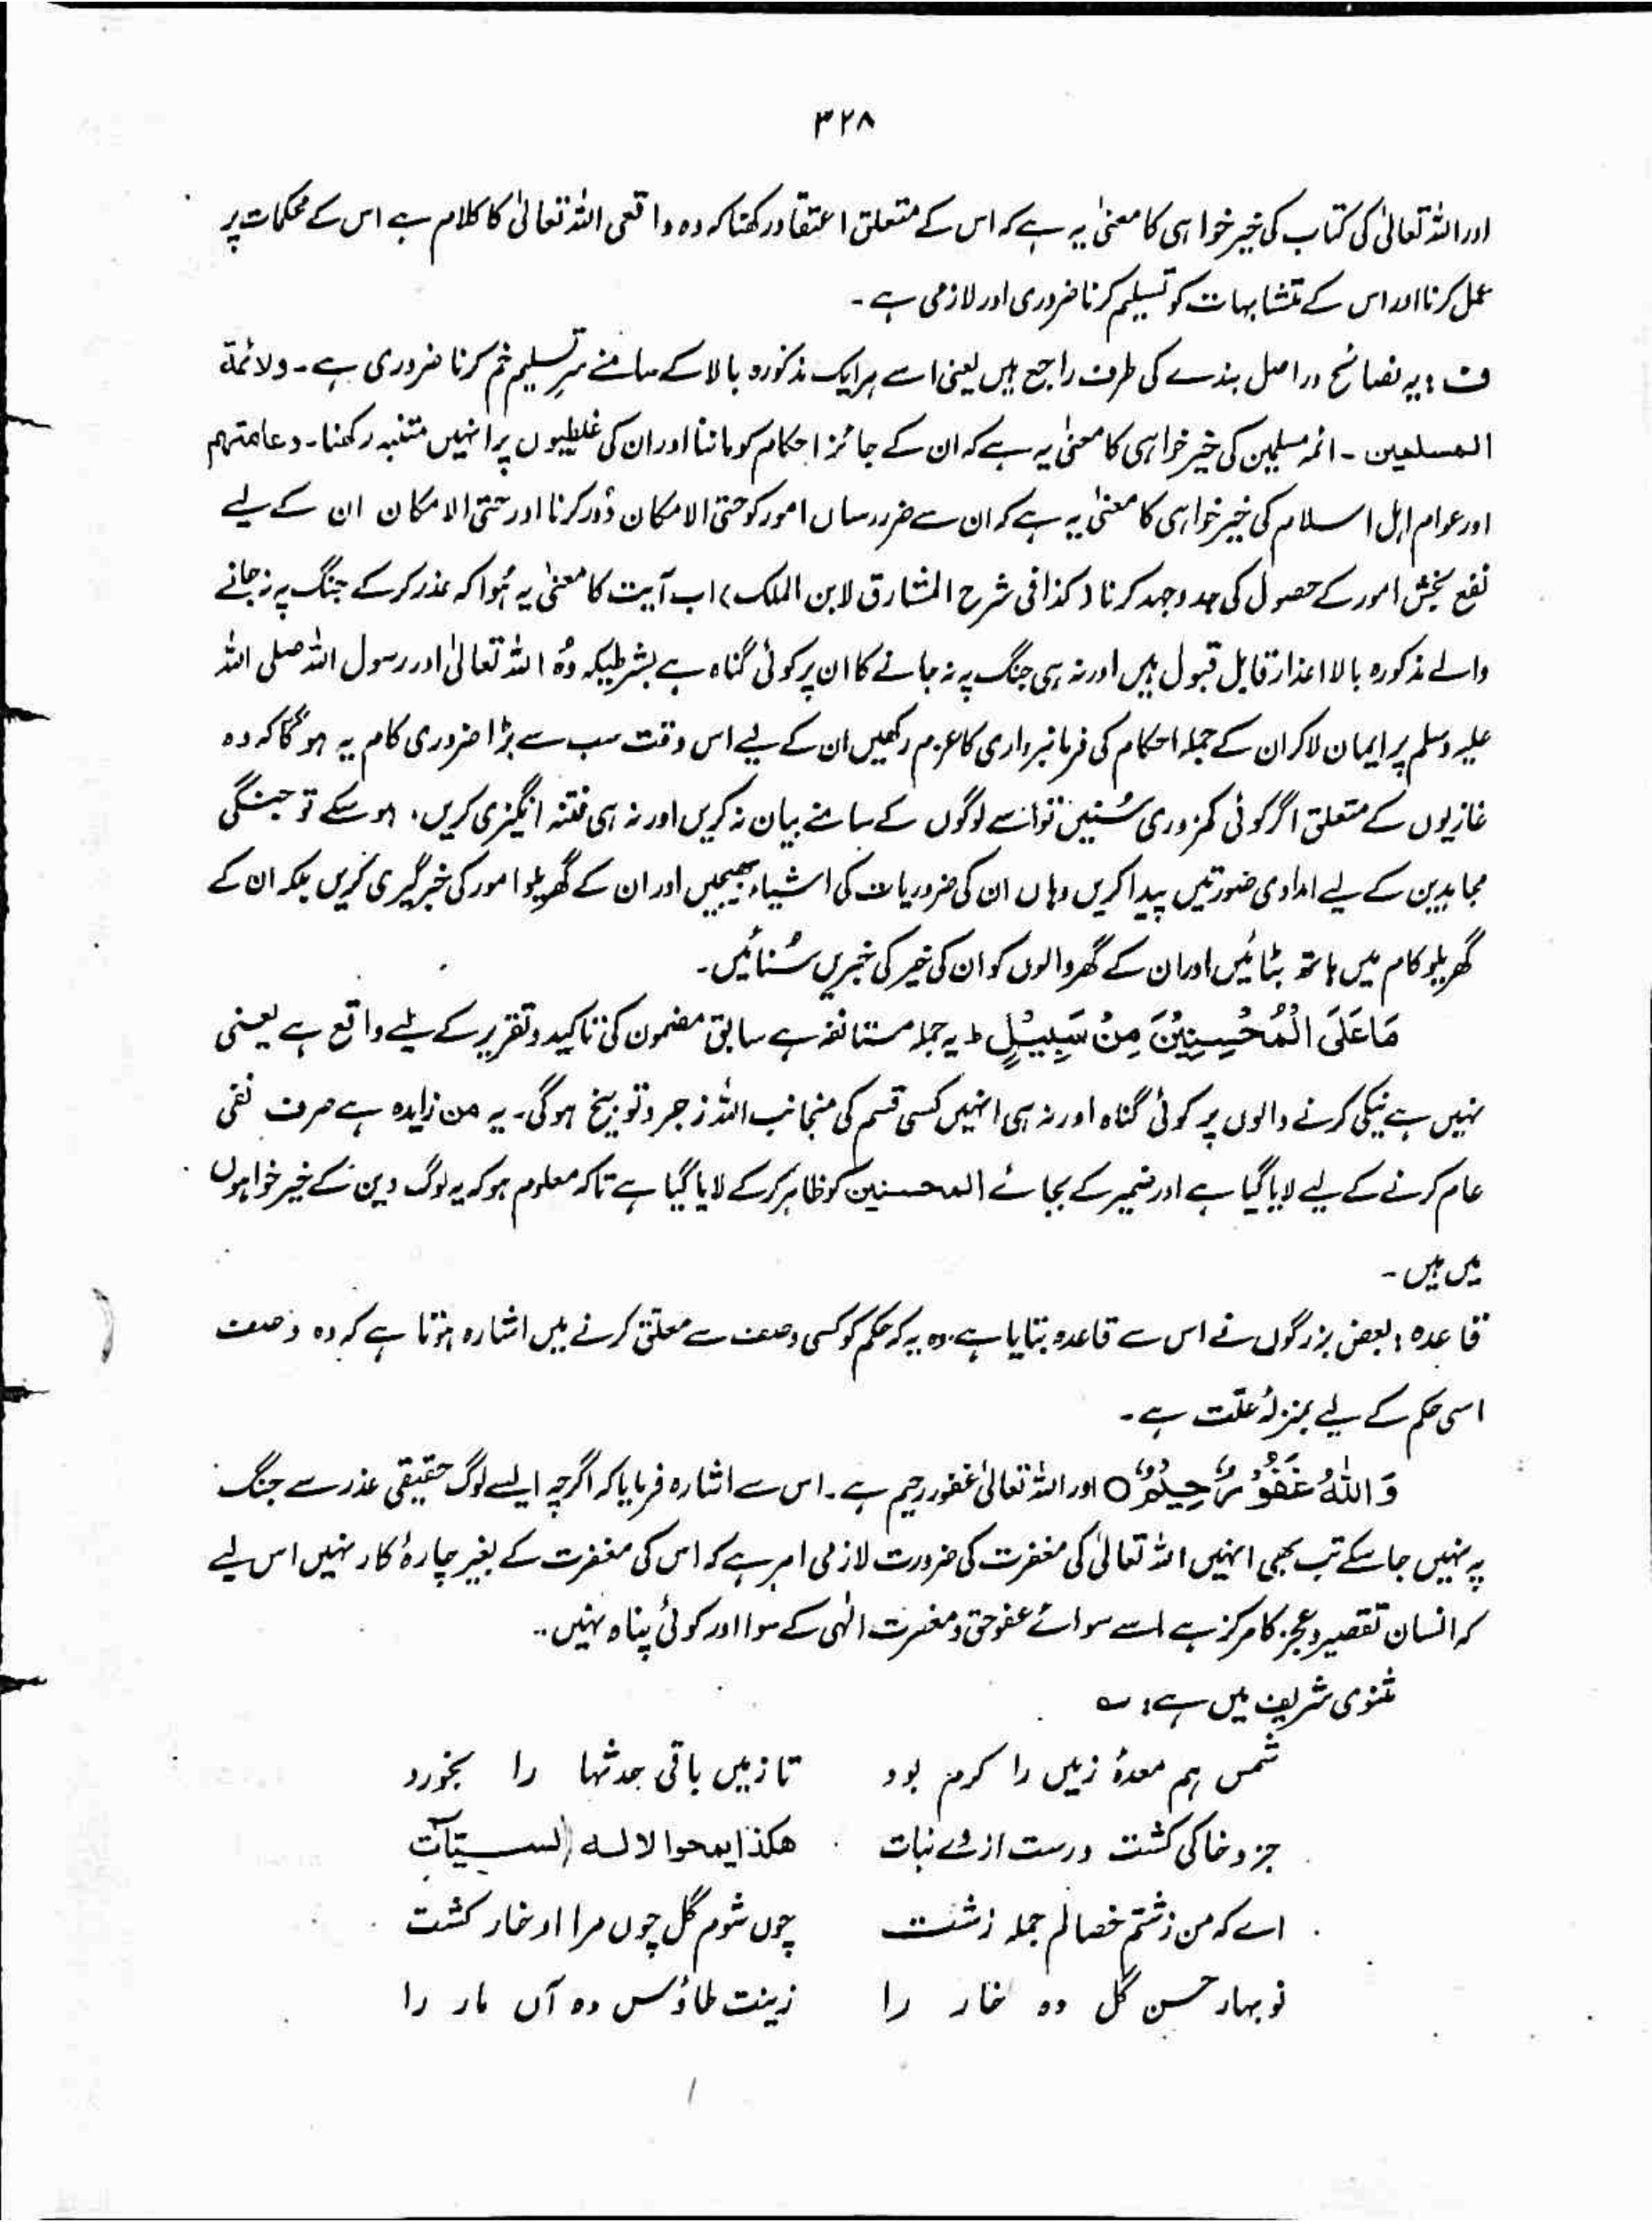 ۳۲۸
اور اللہ تعالیٰ کی کتاب کی خیر خواہی کا معنیٰ یہ ہے کہ اس کے متعلق اعتقاد رکھنا کہ وہ واقعی اللہ تعالیٰ کا کلام ہے اس کے محکمات پر
عمل کرنا اور اس کے متشابہات کو تسلیم کرنا ضروری اور لازمی ہے ۔
ف : یہ نصائح در اصل بندے کی طرف راجع ہیں یعنی اسے ہر ایک مذکورہ بالا کے سامنے سرِ تسلیم خم کرنا ضروری ہے ۔ ولائمة
المسلمین ۔ ائمہ مسلمین کی خیر خواہی کا معنیٰ یہ ہے کہ ان کے جائز احکام کو ماننا اور ان کی غلطیوں پر انہیں متنبہ رکھنا ۔ وعامتھم
اور عوام اہل اسلام کی خیر خواہی کا معنیٰ یہ ہے کہ ان سے ضرر رساں امور کو حتی الامکان دُور کرنا اور حتی الامکان ان کے لیے
نفع بخش امور کے حصول کی جدوجہد کرنا (کذا فی شرح المشارق لابن الملک) اب آیت کا معنیٰ یہ ہُوا کہ عذر کر کے جنگ پہ نہ جانے
والے مذکورہ بالا اعذار قابل قبول ہیں اور نہ ہی جنگ پہ نہ جانے کا ان پر کوئی گناہ ہے بشرطیکہ وُہ اللہ تعالیٰ اور رسول اللہ صلی اللہ
علیہ وسلم پر ایمان لا کر ان کے جملہ احکام کی فرمانبرداری کا عزم رکھیں ان کے لیے اس وقت سب سے بڑا ضروری کام یہ ہو گا کہ وہ
غازیوں کے متعلق اگر کوئی کمزوری سُنیں تو اسے لوگوں کے سامنے بیان نہ کریں اور نہ ہی فتنہ انگیزی کریں ، ہو سکے تو جنگی
مجاہدین کے لیے امدادی صورتیں پیدا کریں وہاں ان کی ضروریات کی اشیاء بھیجیں اور ان کے گھریلو امور کی خبر گیری کریں بلکہ ان کے
گھریلو کام میں ہاتھ بٹائیں اور ان کے گھر والوں کو ان کی خیر کی خبریں سُنائیں ۔
مَا عَلَی الْمُحْسِنِیْنَ مِنْ سَبِیْلٍ ط یہ جملہ مستانفہ ہے سابق مضمون کی تاکید و تقریر کے لیے واقع ہے یعنی
نہیں ہے نیکی کرنے والوں پر کوئی گناہ اور نہ ہی انہیں کسی قسم کی منجانب اللہ زجر و توبیخ ہو گی ۔ یہ من زایدہ ہے صرف نفی
عام کرنے کے لیے لایا گیا ہے اور ضمیر کے بجائے المحسنین کو ظاہر کر کے لایا گیا ہے تاکہ معلوم ہو کہ یہ لوگ دین کے خیر خواہوں
میں ہیں ۔
قاعدہ : بعض بزرگوں نے اس سے قاعدہ بتایا ہے ۔ وہ یہ کہ حکم کو کسی وصف سے معلق کرنے میں اشارہ ہوتا ہے کہ وہ وصف
اسی حکم کے لیے بمنزلۂ علّت ہے ۔
وَ اللّٰهُ غَفُوْرٌ رَّحِیْمٌ ○ اور اللہ تعالیٰ غفور رحیم ہے ۔ اس سے اشارہ فرمایا کہ اگرچہ ایسے لوگ حقیقی عذر سے جنگ
پہ نہیں جا سکے تب بھی انہیں اللہ تعالیٰ کی مغفرت کی ضرورت لازمی امر ہے کہ اس کی مغفرت کے بغیر چارۂ کار نہیں اس لیے
کہ انسان تقصیر و عجز کا مرکز ہے اسے سوائے عفو حق و مغفرت الٰہی کے سوا اور کوئی پناہ نہیں ..
مثنوی شریف میں ہے : ؎
شمس ہم معدۂ زمیں را گرم بود تا زمیں باقی حدثہا را بخورد
جزو خاکی گشت ورست از وے نبات ھکذا یمحوا الالہ السیّئات
اے کہ من زشتم خصالم جملہ زشت چوں شوم گل چوں مرا او خار کشت
نو بہار حسن گل دہ خار را زینت طاؤس دہ آں مار را